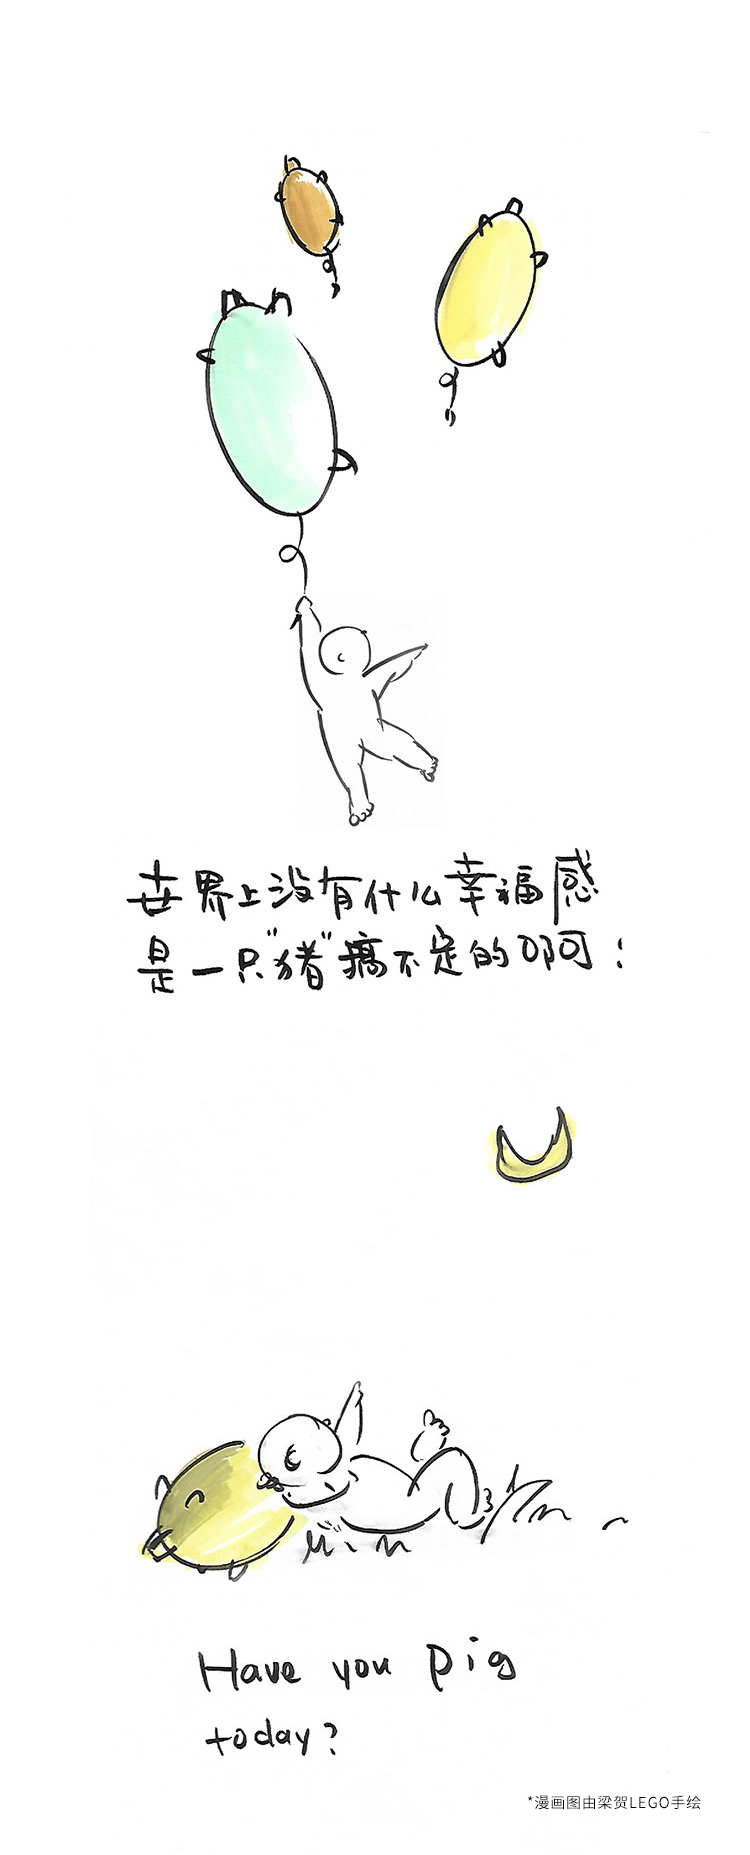 世界上没有什么幸福感
是一只"猪"搞不定的啊：
Have you pig
today?
*漫画图由梁贺LEGO手绘